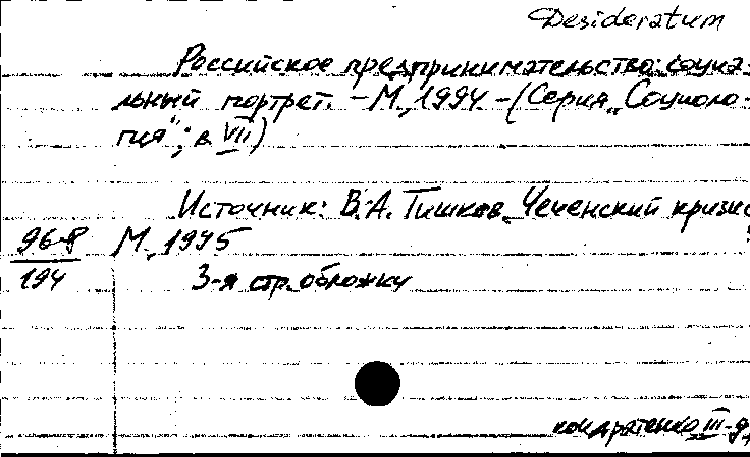 Desideratum
Российское предпринимательство: социа-
льный портрет. – М., 1994. – (Серия „Социоло-
гия"; в. VII)
Источник: В.А. Тишков „Чеченский кризис
96-8 М., 1995
194 3-я стр. обложки
кондратенко III-